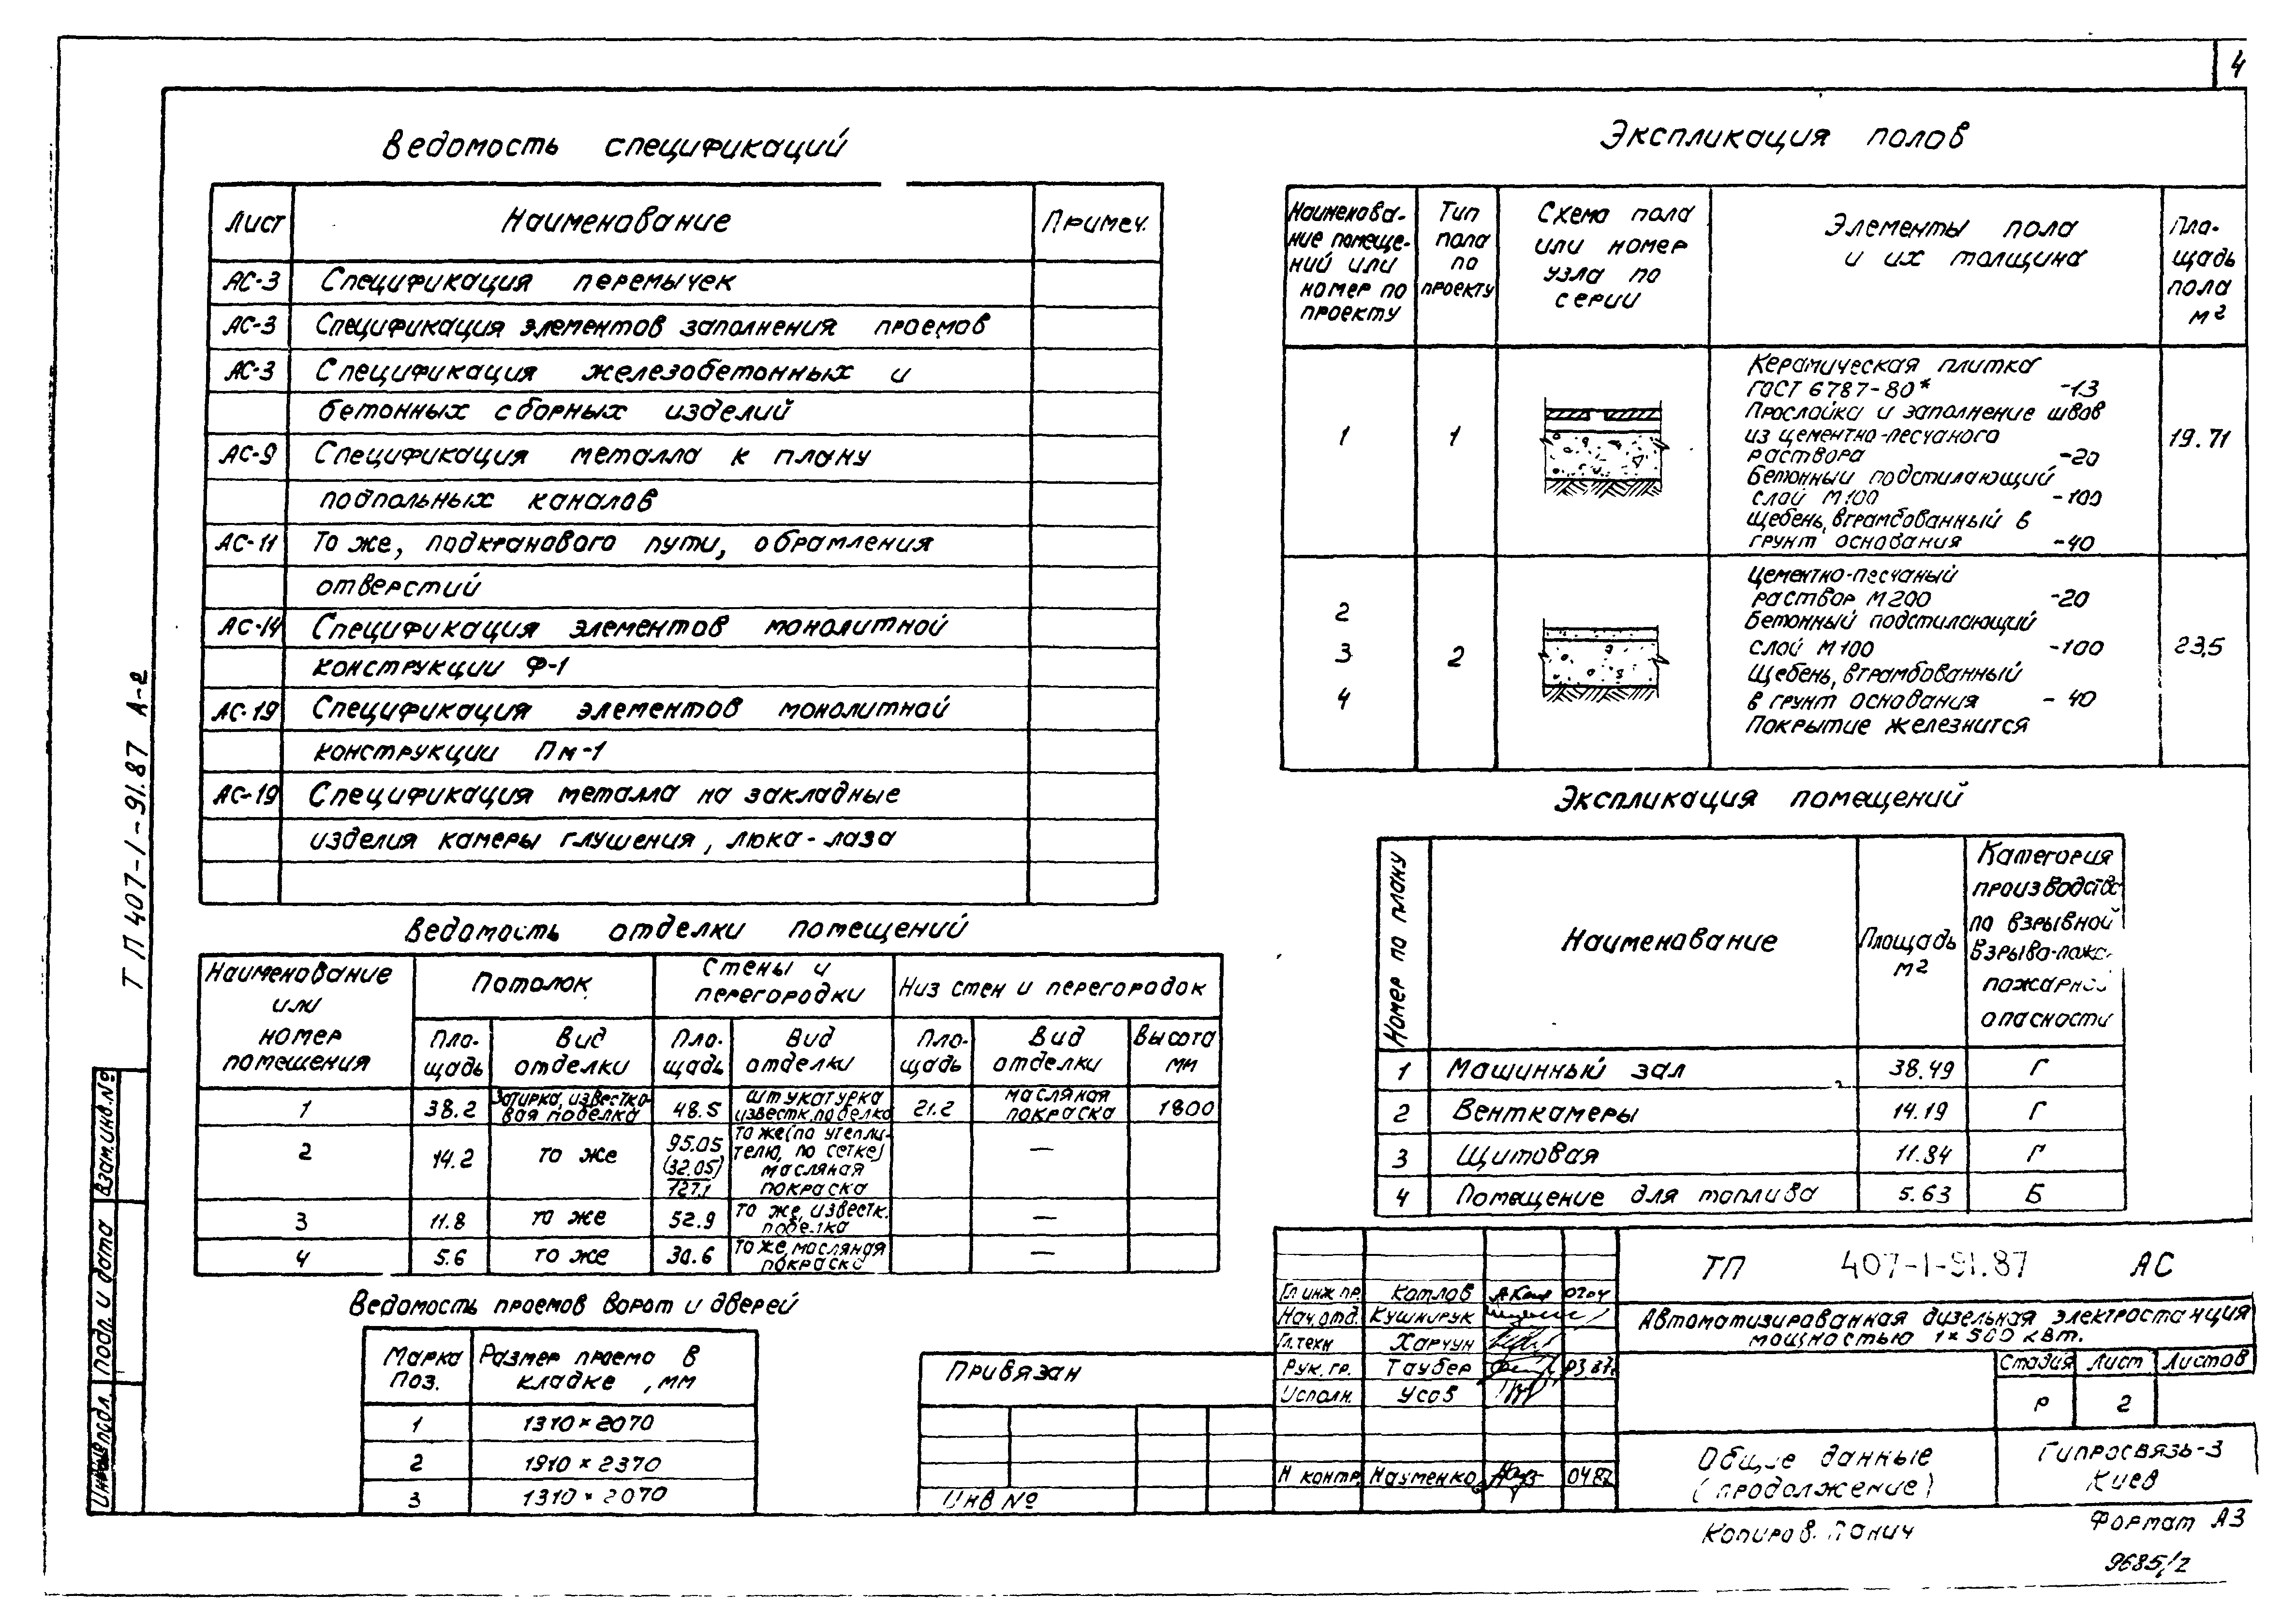 4
Ведомость спецификаций
Лист Наименование Примеч.
АС-3 Спецификация перемычек
АС-3 Спецификация элементов заполнения проемов
АС-3 Спецификация железобетонных и
бетонных сборных изделий
АС-9 Спецификация металла к плану
подпольных каналов
АС-11 То же, подкранового пути, обрамления
отверстий
АС-14 Спецификация элементов монолитной
конструкции Ф-1
АС-19 Спецификация элементов монолитной
конструкции Пм-1
АС-19 Спецификация металла на закладные
изделия камеры глушения, люка-лаза
Ведомость отделки помещений
Наименование или номер помещения
Потолок
Стены и перегородки
Низ стен и перегородок
Пло-щадь Вид отделки Пло-щадь Вид отделки Пло-щадь Вид отделки Высота мм
1 38.2 Затирка, известко-вая побелка 48.5 штукатурка известк. побелка 21.2 масляная покраска 1800
2 14.2 то же 95.05 (32.05) 127.1 то же (по утепли-телю, по сетке) масляная покраска —
3 11.8 то же 52.9 то же, известк. побелка —
4 5.6 то же 30.6 то же, масляная покраска —
Ведомость проемов ворот и дверей
Марка Поз. Размер проема в кладке, мм
1 1310×2070
2 1910×2370
3 1310×2070
Экспликация полов
Наименова-
ние помеще-
ний или
номер по
проекту
Тип
пола
по
проекту
Схема пола
или номер
узла по
серии
Элементы пола
и их толщина
Пло-
щадь
пола
м²
1 1
Керамическая плитка
ГОСТ 6787-80* -13
Прослойка и заполнение швов
из цементно-песчаного
раствора -20
Бетонный подстилающий
слой М100 -100
Щебень, втрамбованный в
грунт основания -40
19.71
2
3
4
2
Цементно-песчаный
раствор М200 -20
Бетонный подстилающий
слой М100 -100
Щебень, втрамбованный
в грунт основания - 40
Покрытие железнится
23,5
Экспликация помещений
Номер по плану
Наименование
Площадь
м²
Категория
производств
по взрывной
Взрыво-пож.
пожарной
опасности
1 Машинный зал 38.49 Г
2 Венткамеры 14.19 Г
3 Щитовая 11.84 Г
4 Помещение для топлива 5.63 Б
Привязан
Инв №
Гл инж. пр. Котлов 0204
Нач. отд. Кушнирук
Гл. техн Харчун
Рук. гр. Таубер 03.87
Исполн. Усов
Н контр. Науменко 04 87
ТП 407-1-91.87 АС
Автоматизированная дизельная электростанция
мощностью 1×500 кВт.
Стадия Лист Листов
Р 2
Общие данные
(продолжение)
Гипросвязь-3
Киев
Копиров. Панич
Формат А3
9685/2
ТП 407-1-91.87 А-2
Взам. инв. №
Подп. и дата
Инв № подл.